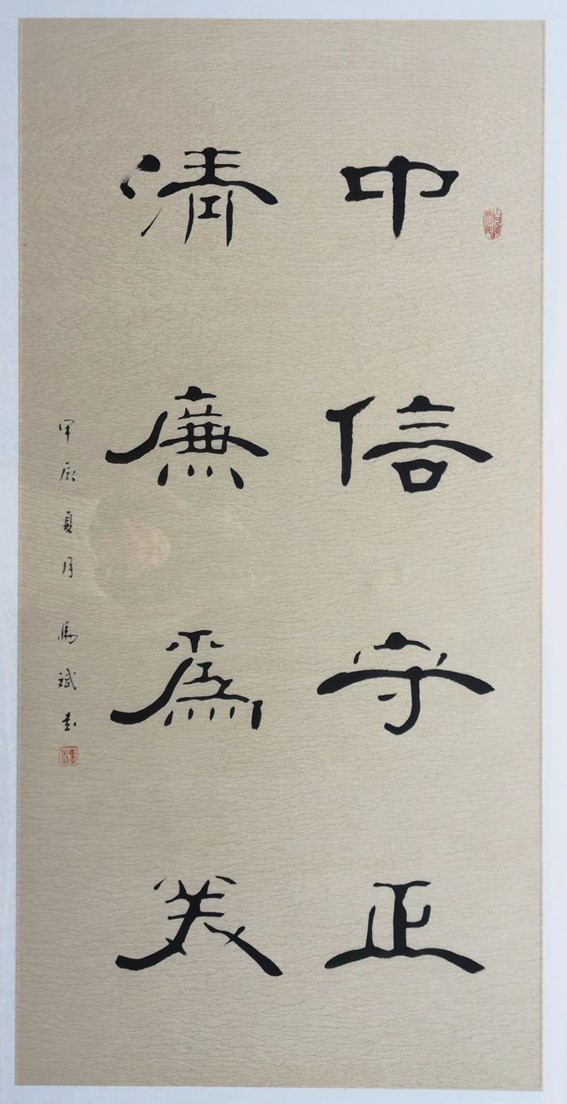 中信守正
清廉為美
甲辰夏月 馬斌書